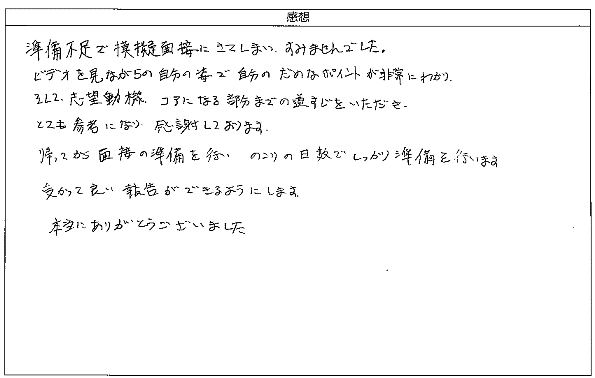 感想
準備不足で模擬面接にきてしまい すみませんでした。
ビデオを見ながらの自分の姿で自分のだめなポイントが非常にわかり、
そして、志望動機、コアになる部分までの道すじをいただき、
とても参考になり 感謝しております。
帰ってから面接の準備を行い のこりの日数でしっかり準備を行います
受かって良い報告ができるようにします。
本当にありがとうございました